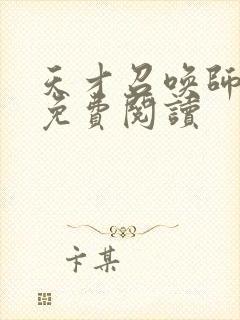 天才召喚師
免費閱讀
卞某